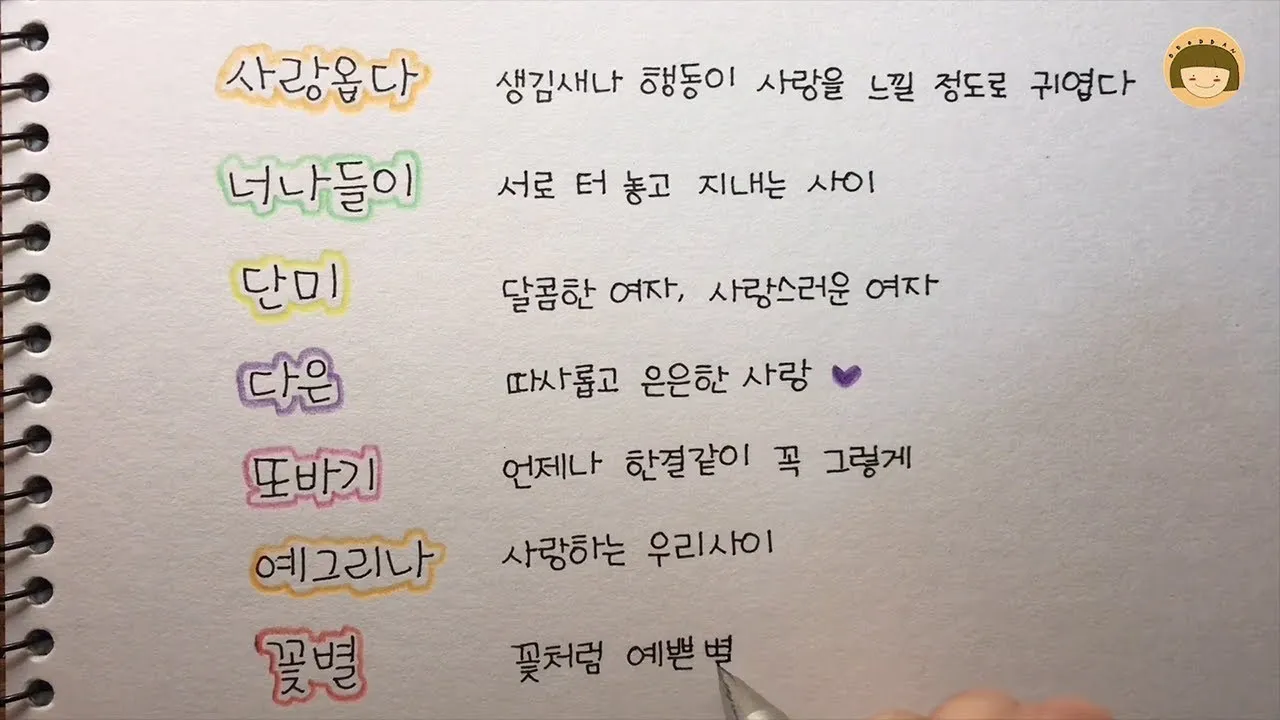 사랑옵다 생김새나 행동이 사랑을 느낄 정도로 귀엽다
너나들이 서로 터 놓고 지내는 사이
단미 달콤한 여자, 사랑스러운 여자
다은 따사롭고 은은한 사랑
또바기 언제나 한결같이 꼭 그렇게
예그리나 사랑하는 우리사이
꽃별 꽃처럼 예쁜 별